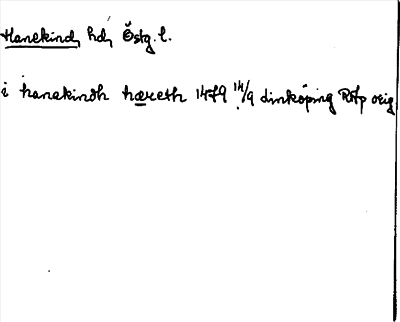 Hanekind, hd, Östg. l.
i hanekindh hæreth 1479 14/9 Linköping RAp orig